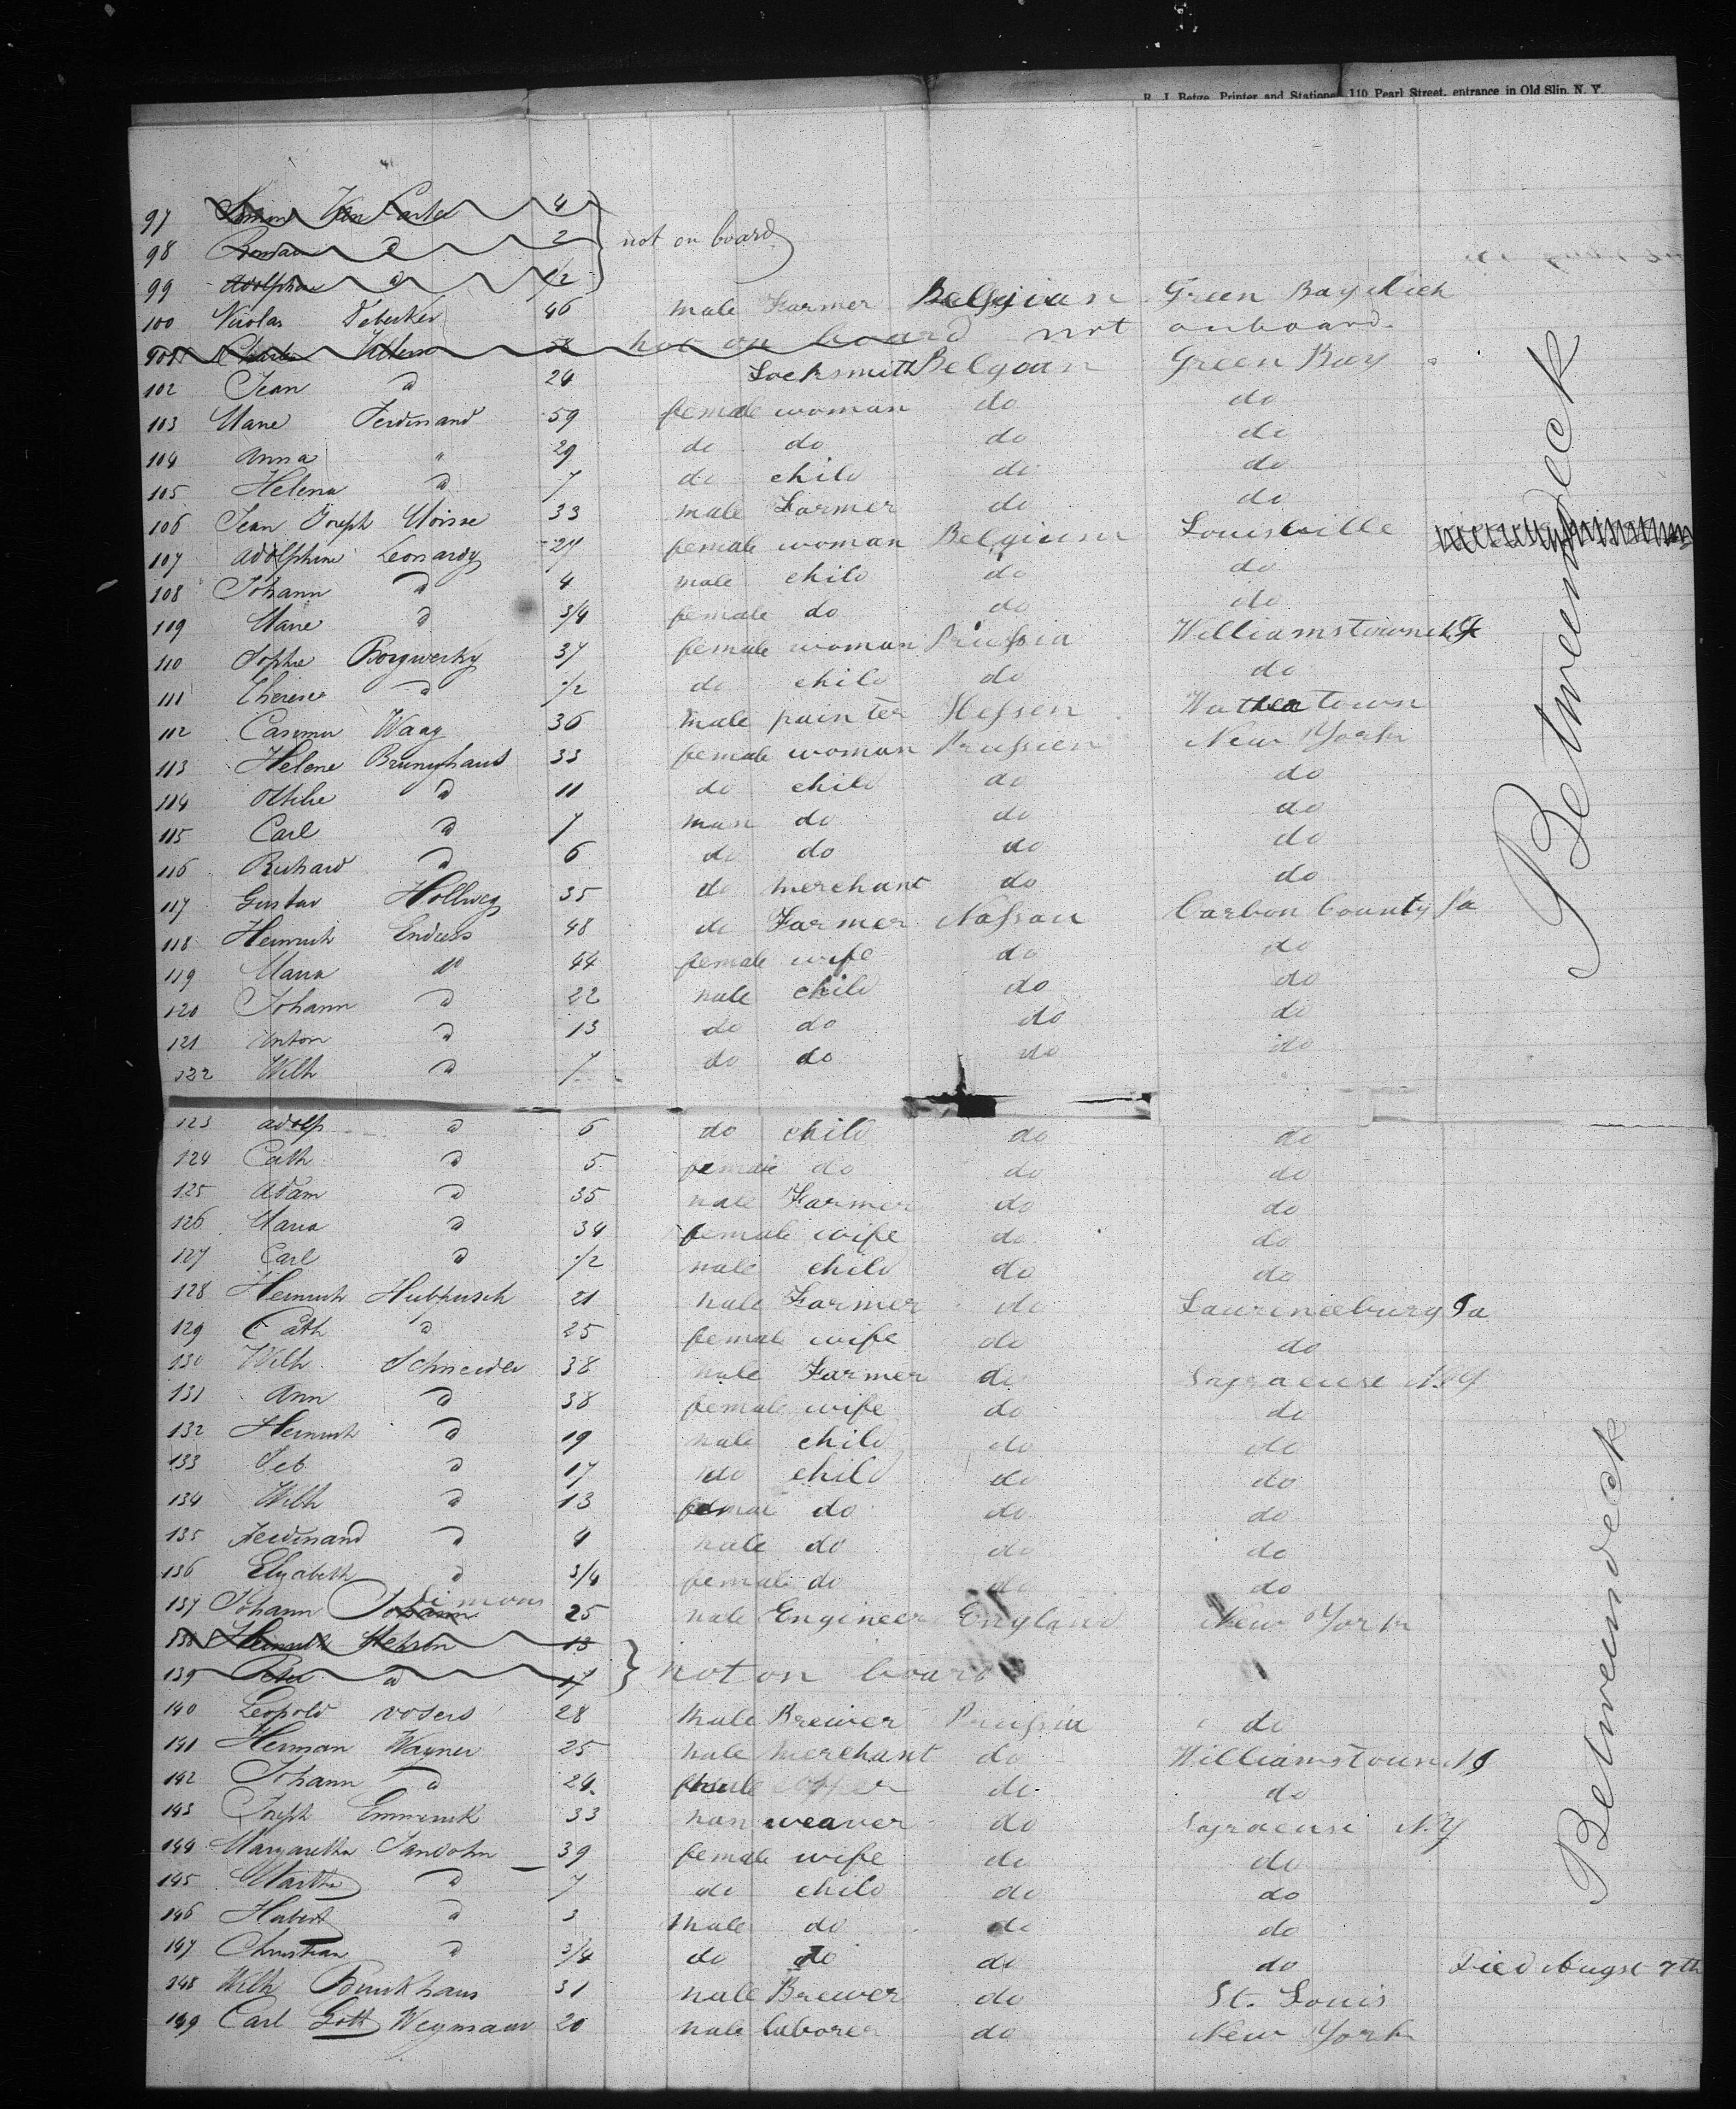 R. J. Betge, Printer and Stationer 110 Pearl Street, entrance in Old Slip, N. Y.
97 Van 4
98 d 2 not on board
99 Adolphine d 1/2
100 Nicolas Debecker 46 male Farmer Belgian Green Bay Mich
101 Charles not on board not onboard
102 Jean d 24 Locksmith Belgian Green Bay
103 Marie Ferdinand 59 female woman do do
104 Anna " 29 do do do do
105 Helena d 7 do child do do
106 Jean Joseph Moisse 33 male Farmer do do
107 Adolphine Leonardy 27 female woman Belgium Louisville
108 Johann d 4 male child do do
109 Marie d 3/4 female do do do
110 Sophie Borgwerky 37 female woman Prussia Williamstown
111 Therese d 1/2 do child do do
112 Casimir Waag 36 male painter Hessen Watertown
113 Helene Bruninghaus 33 female woman Prussien New York
114 Ottilie d 11 do child do do
115 Carl d 7 man do do do
116 Richard d 6 do do do do
117 Gustav Hollweg 35 do merchant do do
118 Heinrich Enders 48 do Farmer Nassau Carbon County Pa
119 Maria do 44 female wife do do
120 Johann d 22 male child do do
121 Anton d 13 do do do do
122 Wilh d 7 do do do do
Betweendeck
123 Adolp d 6 do child do do
124 Cath d 5 female do do do
125 Adam d 35 male Farmer do do
126 Maria d 34 female wife do do
127 Carl d 1/2 male child do do
128 Heinrich 21 male Farmer do Laurenceburg
129 Cath d 25 female wife do do
130 Wilh Schneider 38 male Farmer do Sayracuse N.Y
131 Ann d 38 female wife do do
132 Heinrich d 19 male child do do
133 Seb d 17 do child do do
134 Wilh d 13 femal do do do
135 Ferdinand d 4 male do do do
136 Elisabeth d 3/4 female do do do
137 Johann Johann Simons 25 male Engineer England New York
138 Heinrich 13
139 Peter d 17 not on board
140 Leopold Vosers 28 Male Brewer Prussia do
141 Herman Wagner 25 male merchant do Williamstown
142 Johann d 24 do do
143 Joseph Emmerick 33 man weaver do Sayracuse N.Y
144 Margaretha Sandohn 39 female wife do do
145 Martha d 7 do child do do
146 Hubert d 3 Male do do do
147 Christian d 3/4 do do do do Died Augst 7th
148 Wilh Brinkhaus 31 male Brewer do St. Louis
149 Carl Gott Weymann 20 male laborer do New York
Betweendeck